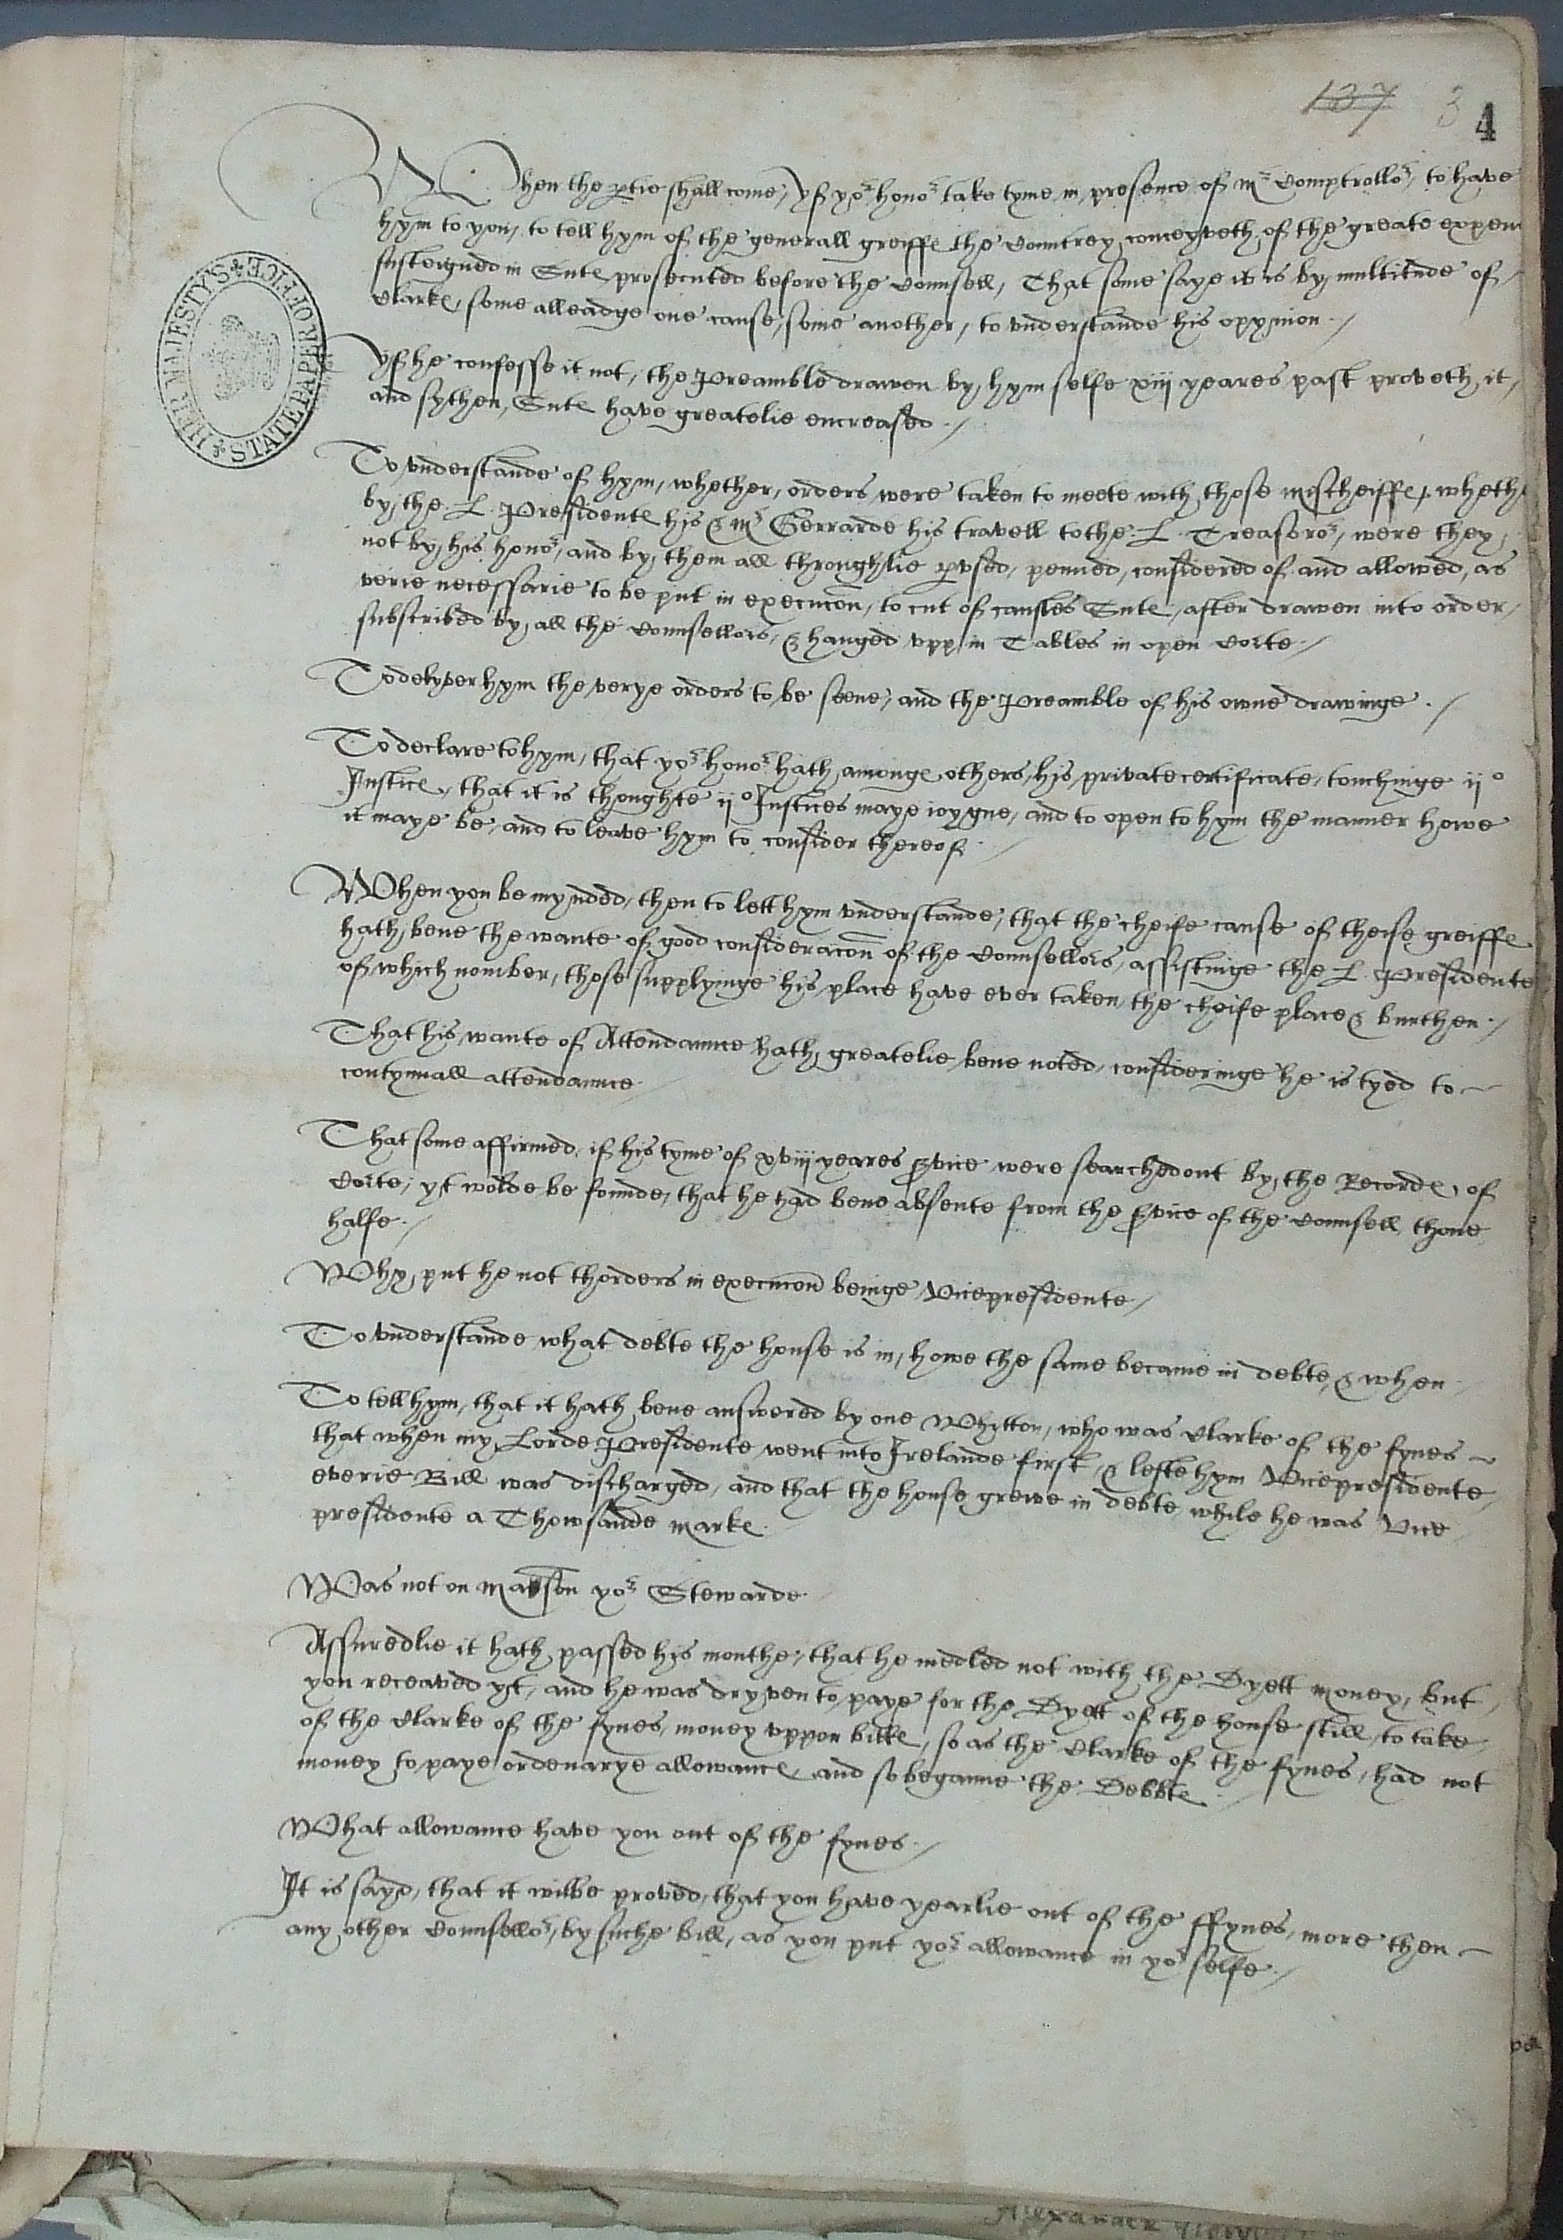 137 3 4
When the ptie shall come, yf yor honor take tyme in presence of Mr Comptrollor, to have
hym to you, to tell hym of the generall greiffe the Countrey conceyveth of the greate expen
susteigned in Sute prosecuted before the Counsell, That some saye it is by multitude of
Clarke, some alleadge one cause, some another, to understande his oppinion./
Yf he confesse it not, the Preamble drawen by hym selfe xiij yeares past proveth it,
and sythen, Sute have greatelie encreased./
To understande of hym, whether, orders were taken to meete with those mischeiffe, wheth
by the L. Presidente his & Mr Gerrarde his travell to the L. Treasoror, were they
not by his honor, and by them all throughlie pvsed, penned, considered of and allowed, as
verie necessarie to be put in execucon, to cut of causles Sute, after drawen into order,
subscribed by all the Counsellors, & hanged upp in Tables in open Corte./
To delyver hym the verye orders to be seene, and the Preamble of his owne drawinge./
To declare to hym, that yor honor hath amonge others, his private certificate, touchinge ijo
Justice, that it is thoughte ijo Justices maye ioygne, and to open to hym the manner howe
it maye be, and to leave hym to consider thereof./
When you be mynded, then to lett hym understande, that the cheife cause of theise greiffe
hath bene the wante of good consideracon of the Counsellors, assistinge the L. Presidente
of which nomber, those supplyinge his place have ever taken the cheife place & burthen./
That his wante of Attendaunce hath greatelie bene noted, consideringe he is tyed to
contynuall attendaunce./
That some affirmed, if his tyme of xviij yeares svice were searched out by the Recorde of
Corte, yt wolde be founde, that he had bene absente from the svice of the Counsell thone
halfe./
Why put he not thorders in execucon beinge Vicepresidente./
To understande what debte the house is in, howe the same became in debte, & when./
To tell hym, that it hath bene answered by one Whitton, who was Clarke of the fynes
that when my Lorde Presidente went into Irelande first, & lefte hym Vicepresidente,
everie Bill was discharged, and that the house grewe in debte while he was Vice
presidente a Thowsande marke./
Was not on yor Stewarde./
Assuredlie it hath passed his mouthe, that he medled not with the Dyett money, but
you receaved yt, and he was dryven to paye for the Dyett of the house still, to take
of the Clarke of the fynes, money uppon bille, so as the Clarke of the fynes, had not
money to paye ordenarye allowance, and so beganne the Debbte./
What allowance have you out of the fynes./
It is sayd, that it wilbe proved, that you have yearlie out of the ffynes, more then
any other Counsellor, by suche bill, as you put yor allowance in yor selfe./
HER MAJESTY'S STATE PAPER OFFICE